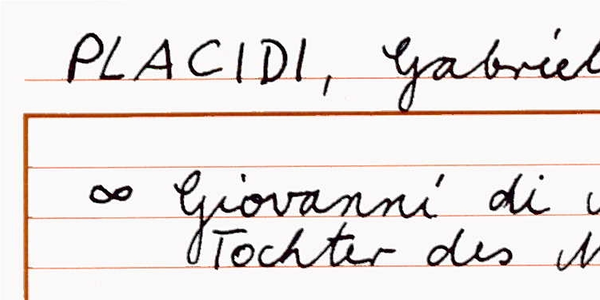 PLACIDI, Gabriel
∞ Giovanni di
Tochter des